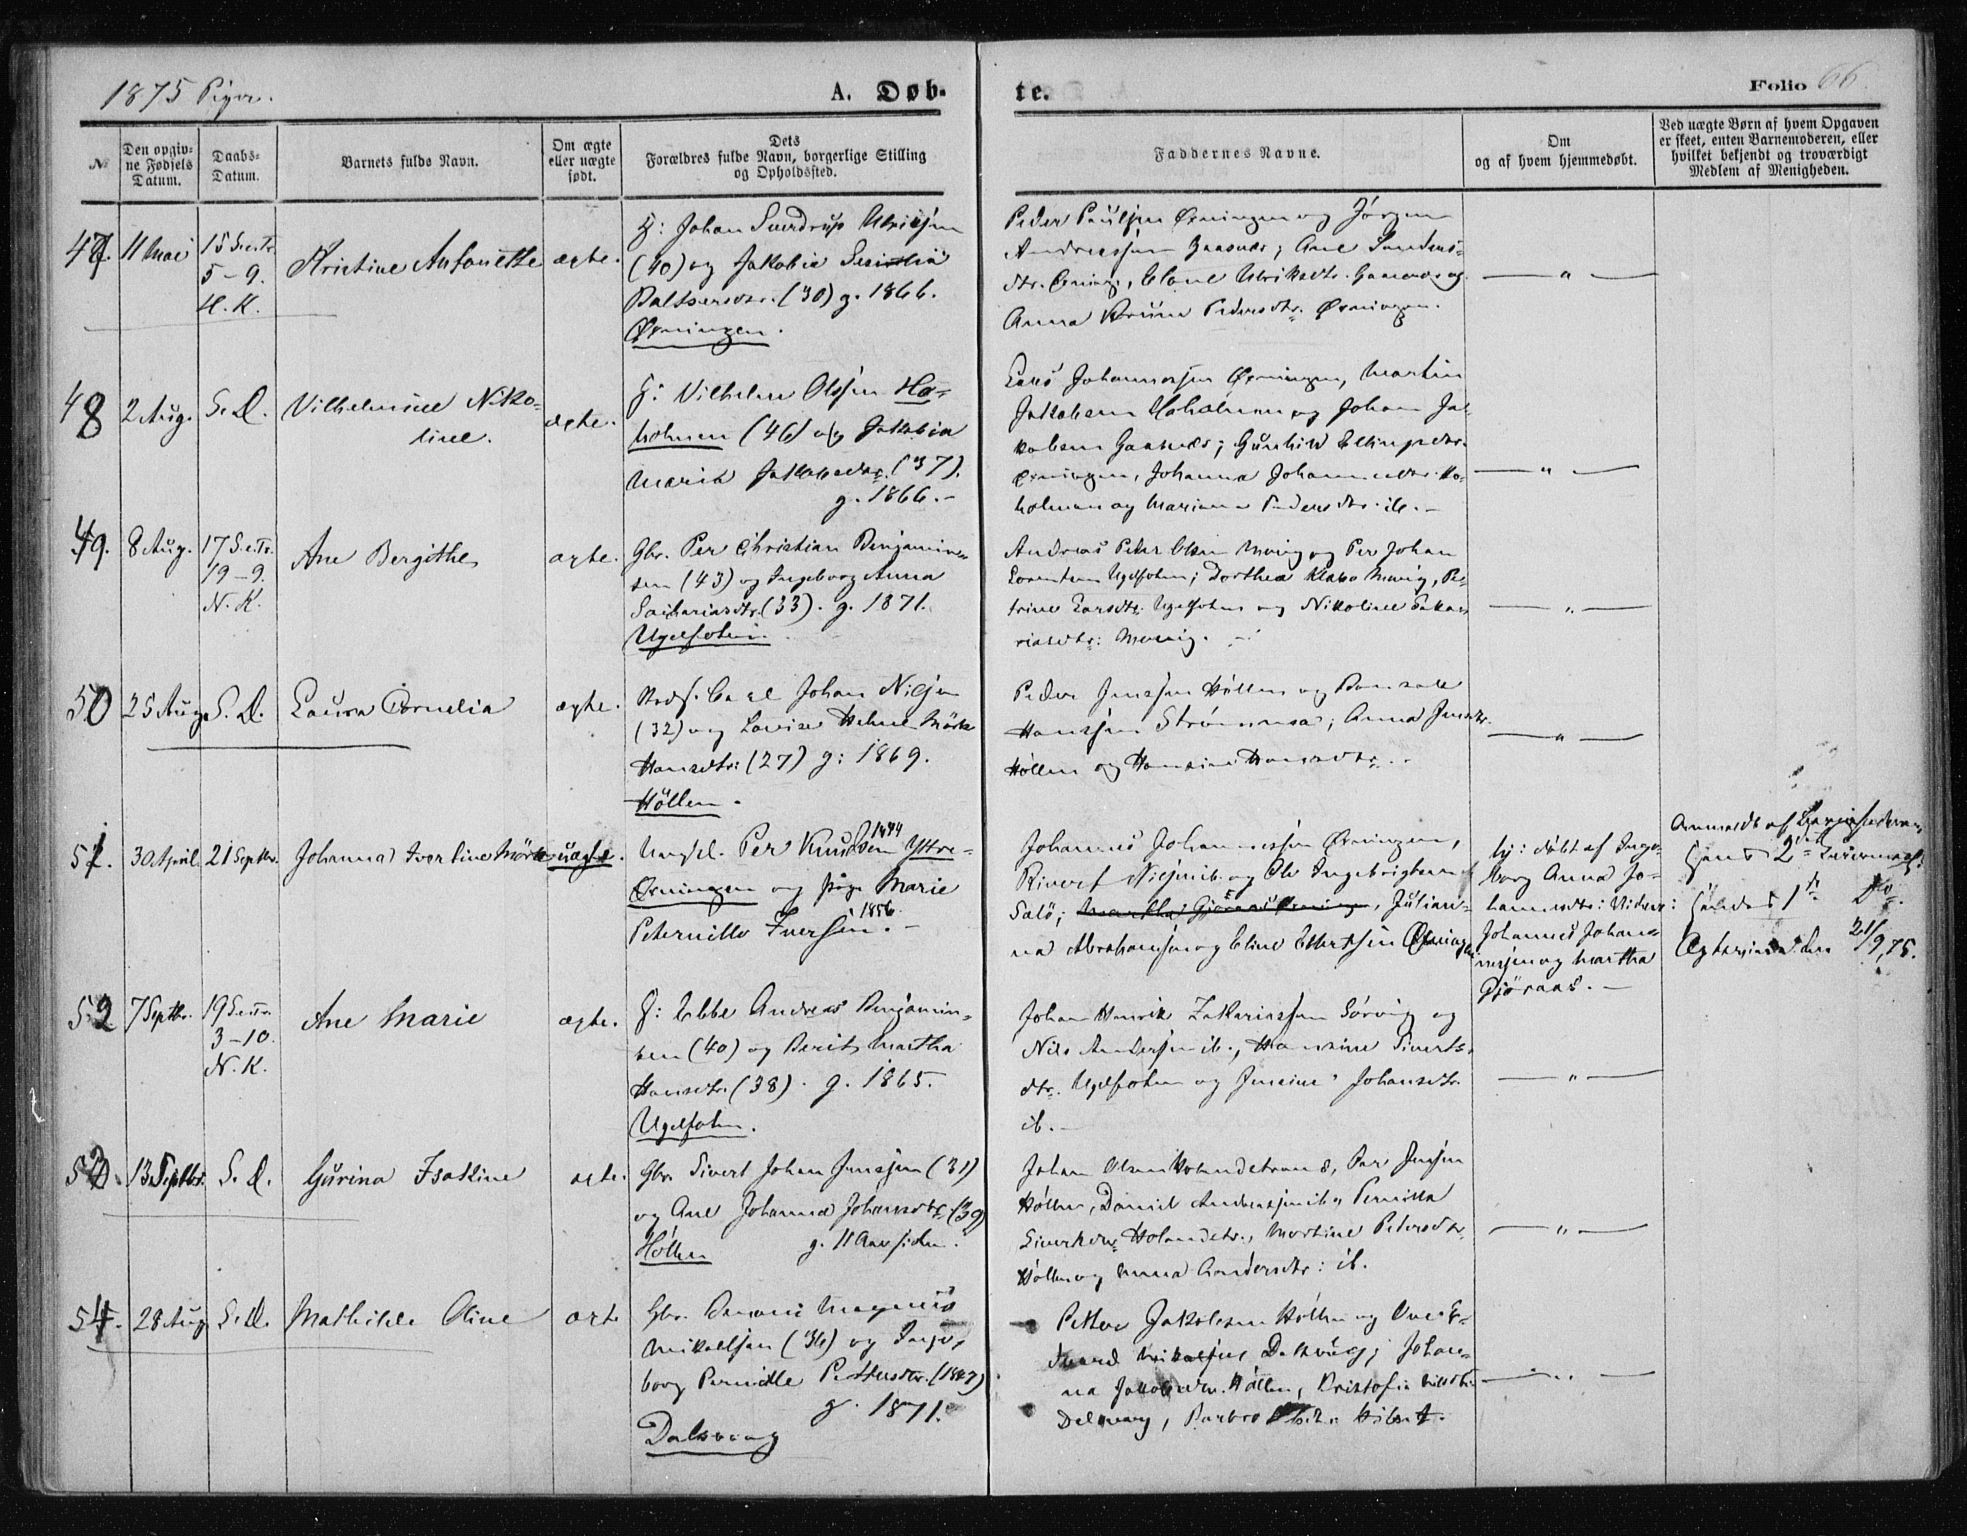 1875 Piger.
A. Døb-
te.
Folio 66
№
Den opgiv-
ne Fødsels
Datum.
Daabs-
Datum.
Barnets fulde Navn.
Om ægte
eller uægte
født.
Dets
Forældres fulde Navn, borgerlige Stilling
og Opholdssted.
Faddernes Navne.
Om
og af hvem hjemmedøbt.
Ved uægte Børn af hvem Opgaven
er skeet, enten Barnemoderen, eller
hvilket bekjendt og troværdigt
Medlem af Menigheden.
47.
11 Mai
15 S.e.Tr.
5-9.
H. K.
Kristine Antonette
ægte.
F: Johan Sverdrup Ulriksen
(40) og Jakobia
Baltsersdtr. (30) g. 1866.
Ørningen.
Peder Paulsen Ørningen og Jørgen
Andreassen Gaasnæs; Ane
dtr. Ørning., Elene Ulriksdtr. Gaasnæs og
Anna Pedersdtr. Ørningen.
— " —
48
2 Aug.
S. D.
Vilhelmine Niko-
line.
ægte.
F: Vilhelm Olsen Ha-
holmen (46) og Jakobia
Maria Jakobsdtr. (37).
g. 1866. -
Lars Johannessen Ørningen, Martin
Jakobsen Haholmen og Johan Ja-
kobsen Gaasnæs; Gunhild Ellingsdtr.
Ørningen, Johanna Johannesdtr. Ha-
holmen og Mariane Pedersdtr. ib. -
— " —
49.
8 Aug.
17 S.e.Tr.
19-9.
N. K.
Ane Bergithe
ægte.
Gbr. Per Christian Benjamin-
sen (43) og Ingeborg Anna
Sachariasdtr. (33). g. 1871.
Ugelsholm.
Andreas Peter Olsen og Per Johan
Lorentsen Ugelsholm; Dorthea
trine Larsdtr. Ugelsholm og Nikoline Saka-
riasdtr:
— " —
50
25 Aug.
S. D.
Laura Cornelia
ægte.
Carl Johan Nilsen
(32) og Lovise Helene Mørk
Hansdtr: (27) g: 1869.
Höllen.
Peder Jenssen Höllen og
Hanssen Strømmen; Anna Jensdtr.
Höllen og Hansine Hansdtr.
— " —
51.
30 April
21 Septbr.
Johanna Iverline Mørk
uægte.
Ungk. Per Knudsen 1844 Yttre-
Ørningen og pige Marie
Peternille Iversen. 1856. -
Johannes Johannessen Ørningen,
Sivert Nilsen ib. og Ole Ingebrigtsen
Salö; Martha Gjöraas Ørningen, Julian-
na Abrahamsen og Eline Ellertsen Ørningen
hj: døbt af Inge-
borg Anna Jo-
hannesdtr: Vidner:
Johannes Johan-
nesen og Martha
Gjöraas. -
Anmeldt af Barnefaderen,
Hans 2den Leiermaal,
Hendes 1ste Do.
21/9, 75.
52
7 Septbr.
19 S.e.Tr.
3-10.
N. K.
Ane Marie
ægte.
F: Ebbe Andreas Benjamin-
sen (40) og Berit Martha
Hansdtr. (38). g. 1865.
Ugelsholm.
Johan Henrik Zakariassen Sörvig og
Nils Andersen ib., Hansine Siverts-
dtr. Ugelsholm og Jensine Johansdtr.
ib. -
— " —
53.
13 Septbr.
S. D.
Gurina Isakine
ægte.
Gbr. Sivert Johan Jenssen (31)
og Ane Johanna Johansdtr. (39)
Höllen g. 11 Aar siden.
Johan Olsen Per Jensen
Höllen, Daniel Andreassen ib., Pernilla
Siverksdtr. Martine Pedersdtr.
Höllen og Anna Andersdtr: ib.
— " —
54.
28 Aug
S. D.
Mathilde Oline
ægte
Gbr. Magnus
Mikaelsen (36) og Inge-
borg Pernille Pettersdtr. (1847)
g. 1871.
Dalsvaag
Petter Jakobsen Höllen og Ove E-
dvard Mikalsen Dalsvaag; Johan-
na Jakobsdtr. Höllen, Kristofia Nilsdtr.
Dalsvaag, Barbro
— " —